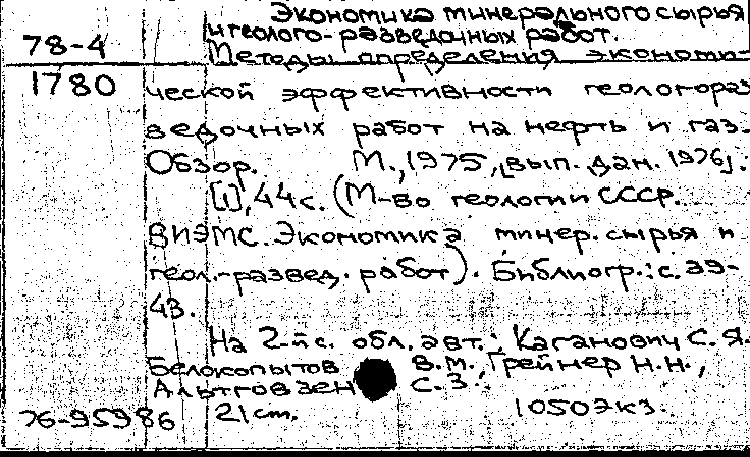 Экономика минерального сырья
78-4 и геолого-разведочных работ.
Методы определения экономи-
1780 ческой эффективности геологораз
ведочных работ на нефть и газ.
Обзор. М., 1975, [вып. дан. 1976].
[1], 44 с. (М-во геологии СССР.
ВИЭМС. Экономика минер. сырья и
геол.-развед. работ). Библиогр.: с. 39-
43.
На 2-й с. обл. авт.: Каганович С. Я.
Белокопытов В.М., Грейнер Н.Н.,
Альтговзен С.З.
76-95986 21 cm. 1050экз.